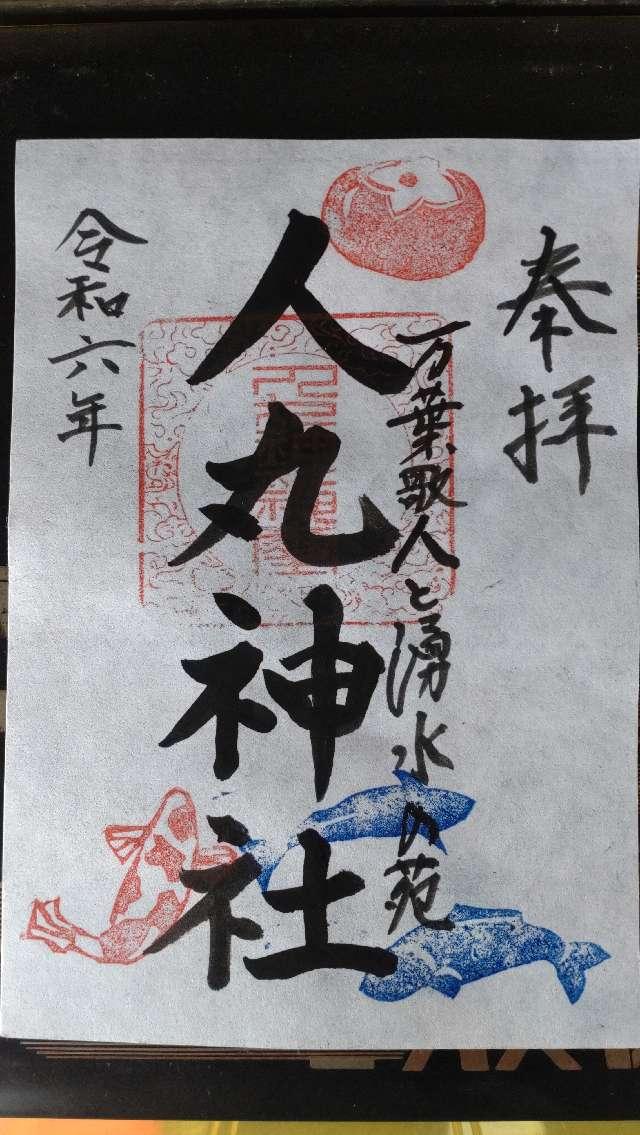 奉拝
万葉歌人と湧水の苑
人丸神社
令和六年